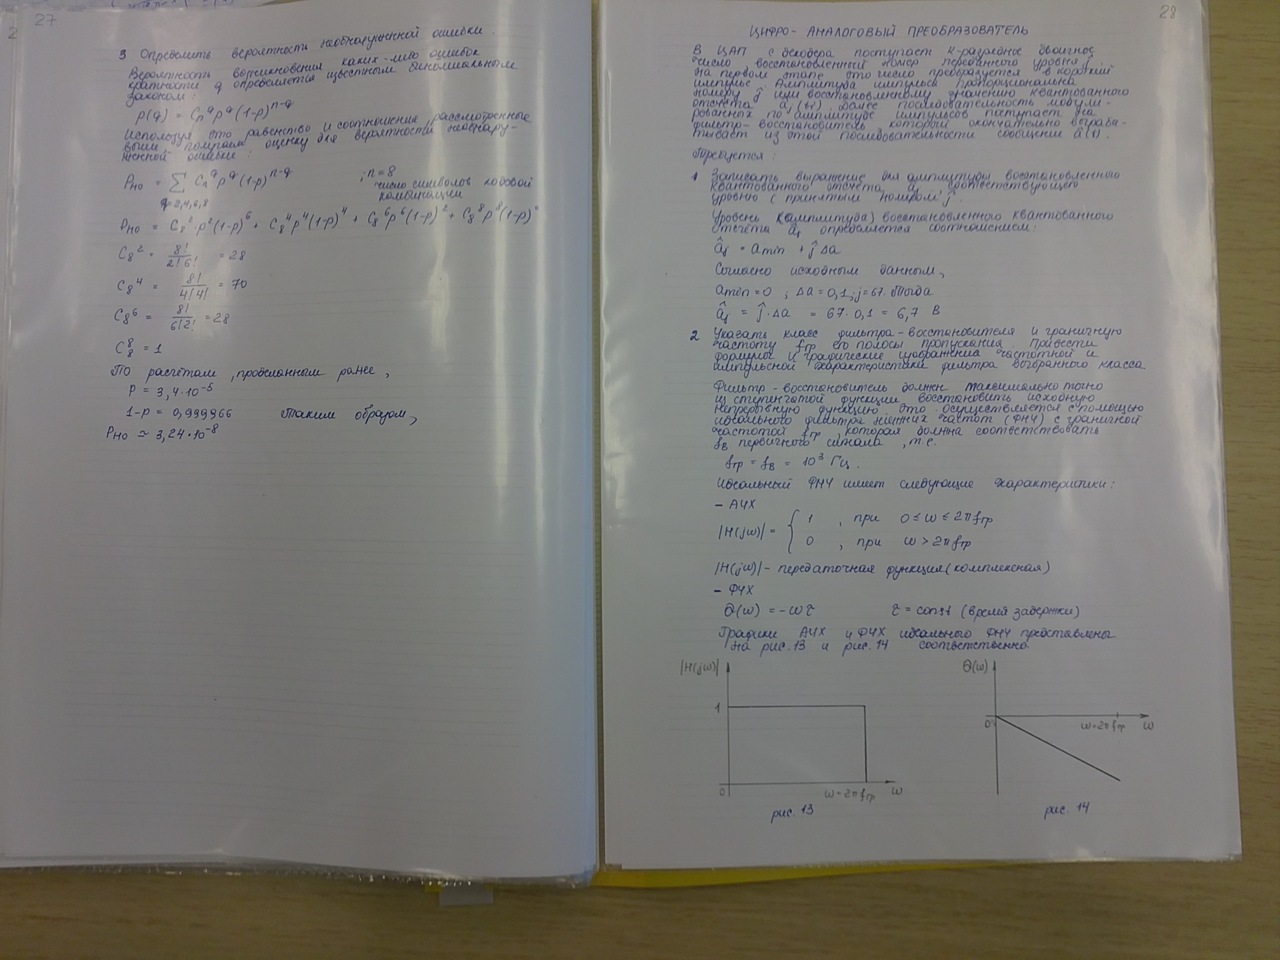 27
3 Определить вероятность необнаруженной ошибки.
Вероятность возникновения каких-либо ошибок
кратности q определяется известным биномиальным
законом:
P(q) = Cₙ^q p^q (1-p)^(n-q)
Используя это равенство и соотношения, рассмотренные
выше, получаем оценку для вероятности необнару-
женной ошибки:
Pно = ∑ Cₙ^q p^q (1-p)^(n-q) ; n = 8
q=2,4,6,8 число символов кодовой
комбинации
Pно = C₈² · p²(1-p)⁶ + C₈⁴ p⁴(1-p)⁴ + C₈⁶ p⁶(1-p)² + C₈⁸ p⁸(1-p)⁰
C₈² = 8! / 2! 6! = 28
C₈⁴ = 8! / 4! 4! = 70
C₈⁶ = 8! / 6! 2! = 28
C₈⁸ = 1
По расчетам, проделанным ранее,
P = 3,4·10⁻⁵
1-p = 0,999966 Таким образом,
Pно ≃ 3,24·10⁻⁸
28
ЦИФРО-АНАЛОГОВЫЙ ПРЕОБРАЗОВАТЕЛЬ
В ЦАП с декодера поступает k-разрядное двоичное
число восстановленный номер переданного уровня ĵ.
На первом этапе это число преобразуется в короткий
импульс. Амплитуда импульса пропорциональна
номеру ĵ или восстановленному значению квантованного
отсчета Далее последовательность модули-
рованных по амплитуде импульсов поступает на
фильтр-восстановитель который окончательно выраба-
тывает из этой последовательности сообщение â(t).
Требуется:
1 Записать выражение для амплитуды восстановленного
квантованного отсчета âĵ, соответствующего
уровню с принятым номером ĵ
Уровень (амплитуда) восстановленного квантованного
отсчета âĵ определяется соотношением:
âĵ = amin + ĵ Δa
Согласно исходным данным,
amin = 0 ; Δa = 0,1 ; j = 67. Тогда
âĵ = ĵ · Δa = 67 · 0,1 = 6,7 В
2 Указать класс фильтра-восстановителя и граничную
частоту fгр его полосы пропускания. Привести
формулы и графические изображения частотной и
импульсной характеристики фильтра выбранного класса
Фильтр-восстановитель должен максимально точно
из ступенчатой функции восстановить исходную
непрерывную функцию. Это осуществляется с помощью
идеального фильтра нижних частот (ФНЧ) с граничной
частотой fгр, которая должна соответствовать
fв первичного сигнала, т.е.
fгр = fв = 10³ Гц.
Идеальный ФНЧ имеет следующие характеристики:
- АЧХ
|H(jω)| = { 1 , при 0 ≤ ω ≤ 2πfгр
0 , при ω > 2πfгр
|H(jω)| - передаточная функция (комплексная)
- ФЧХ
Θ(ω) = -ωτ τ = const (время задержки)
Графики АЧХ и ФЧХ идеального ФНЧ представлены
на рис. 13 и рис. 14 соответственно
|H(jω)|
1
0
ω=2πfгр
ω
рис. 13
Θ(ω)
0
ω=2πfгр
ω
рис. 14